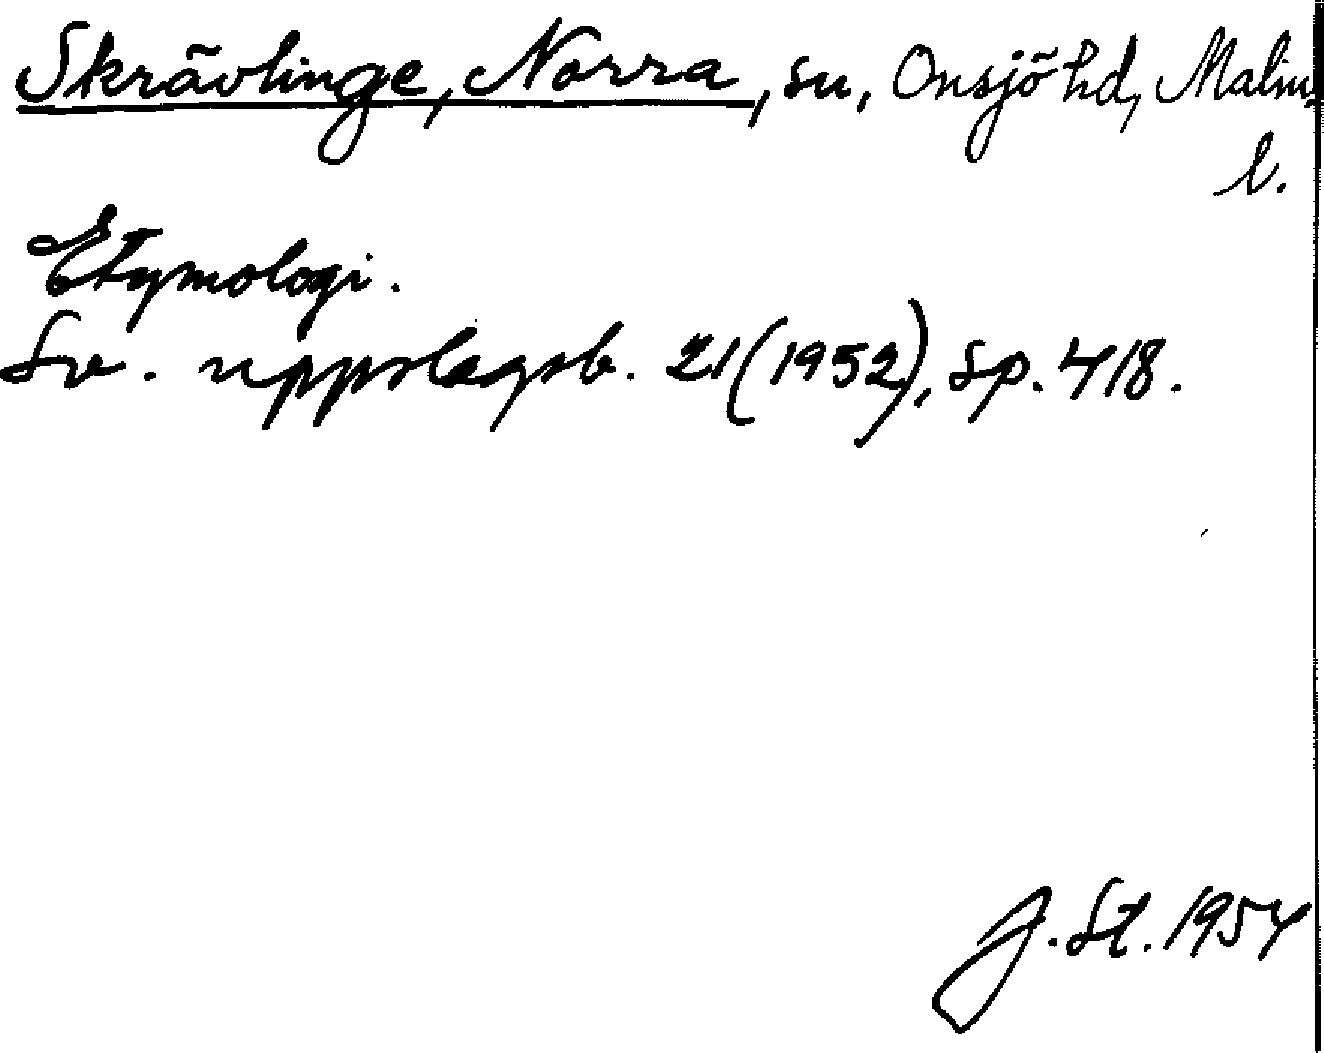 Skrävlinge, Norra, sn, Onsjö hd, Malm.
l.
Etymologi.
Sv. uppslagsb. 21(1952), sp. 418.
J. St. 1954